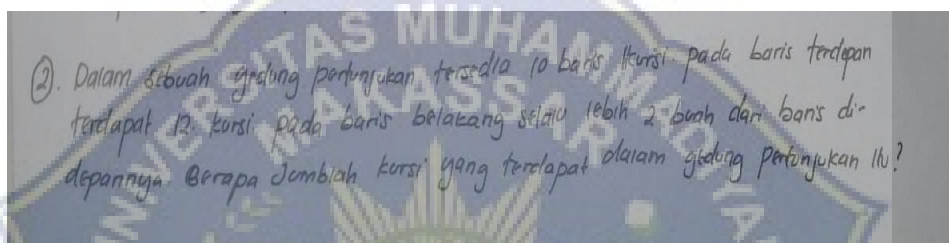 ②. Dalam sebuah gedung pertunjukan tersedia 10 baris kursi. pada baris terdepan
terdapat 12 kursi. pada baris belakang selalu lebih 2 buah dari baris di-
depannya. Berapa Jumblah kursi yang terdapat dalam gedung pertunjukan itu?
UNIVERSITAS MUHAMMADIYA
MAKASSAR